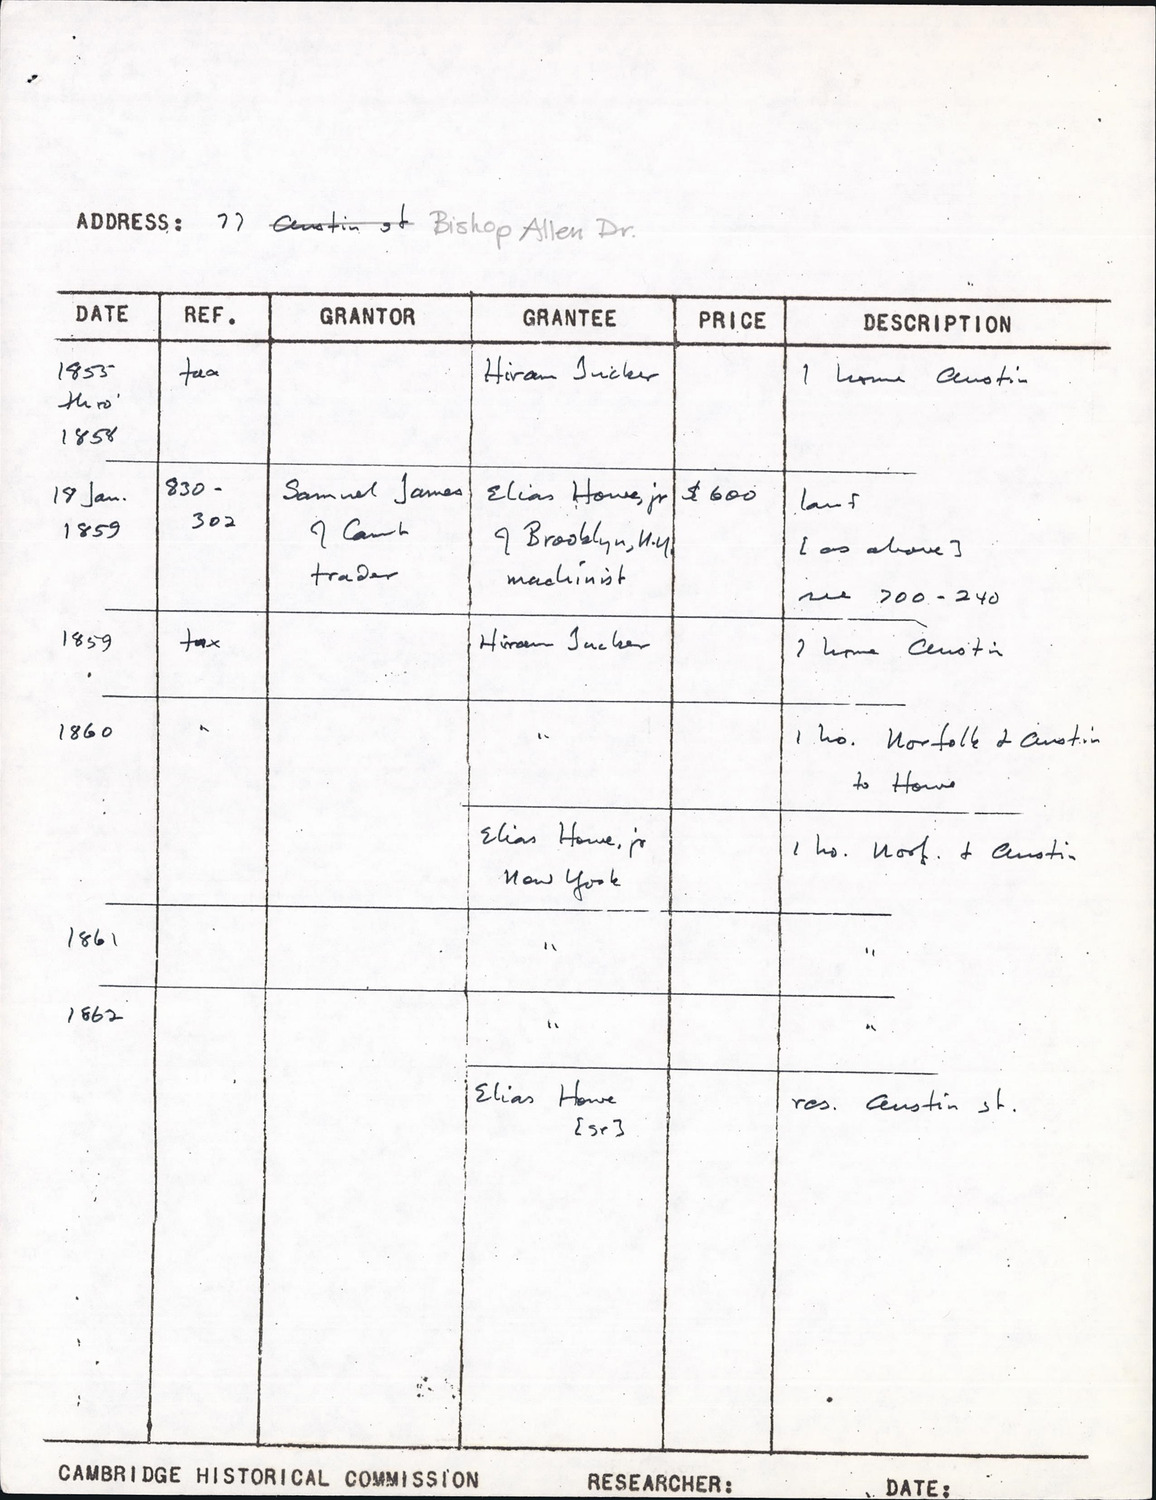 ADDRESS: 77 Austin st Bishop Allen Dr.
DATE REF. GRANTOR GRANTEE PRICE DESCRIPTION
1855 tax Hiram Tucker 1 home Austin
thro'
1858
18 Jan. 830- Samuel James Elias Howe, jr $600 land
1859 302 of Camb of Brooklyn, N.Y. [as above]
trader machinist see 700-240
1859 tax Hiram Tucker 1 home Austin
1860 " " 1 ho. Norfolk & Austin
to Howe
Elias Howe, jr 1 ho. Norf. & Austin
New York
1861 " "
1862 " "
Elias Howe res. Austin st.
[sr]
CAMBRIDGE HISTORICAL COMMISSION RESEARCHER: DATE: